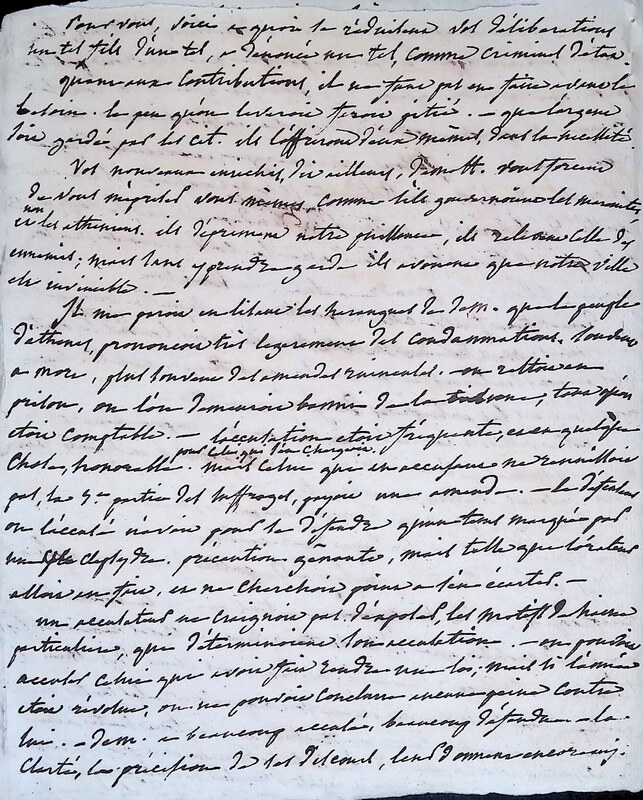 Pour vous, voici a quoi se réduisent vos déliberations
un tel fils d'un tel, a denoncé un tel, comme criminel d'etat.
quant aux contributions, il ne faut pas en faire avant le
besoin. le peu qu'on leveroit feroit pitié. — que l'argent
soit gardé par les cit. ils l'offriront d'eux mêmes, dans la necessité
Vos nouveaux enrichis, dit ailleurs, Demosth. vont forcer
de vous mépriser vous mêmes, comme s'ils gouvernoient les
et non les atheniens. ils dépriment notre puissance, ils relevent celle des
ennemis; mais sans y prendre garde ils avouent que notre ville
est invincible. —
Il me paroit en lisant les harangues de dem. que le peuple
d'athenes, prononcoit très legerement des condamnations. souvent
a mort, plus souvent des amendes ruineuses. — on restoit en
prison, ou l'on demeuroit banni de la tribune, tant qu'on
etoit comptable. — l'accusation etoit fréquente, et en quelque
chose, honorable pour celui qui s'en chargeoit. mais celui qui en accusant ne reunissoit
pas, la 5e partie des suffrages, payoit une amende. — le défenseur
ou l'accusé n'avoit pour se défendre qu'un tems marqué par
une clepsydre. precaution génante, mais telle que l'orateur
alloit au fait, et ne cherchoit point a s'en écarter. —
un accusateur ne craignoit pas d'exposer, les motifs de haine
particuliere, qui déterminoient son accusation. — on pouvoit
accuser celui qui avoit fait rendre une loi, mais si l'année
etoit révolue, on ne pouvoit conclure aucune peine contre
lui. — dem. a beaucoup accusé, beaucoup défendu — la
clarté, la précision de ses discours, les